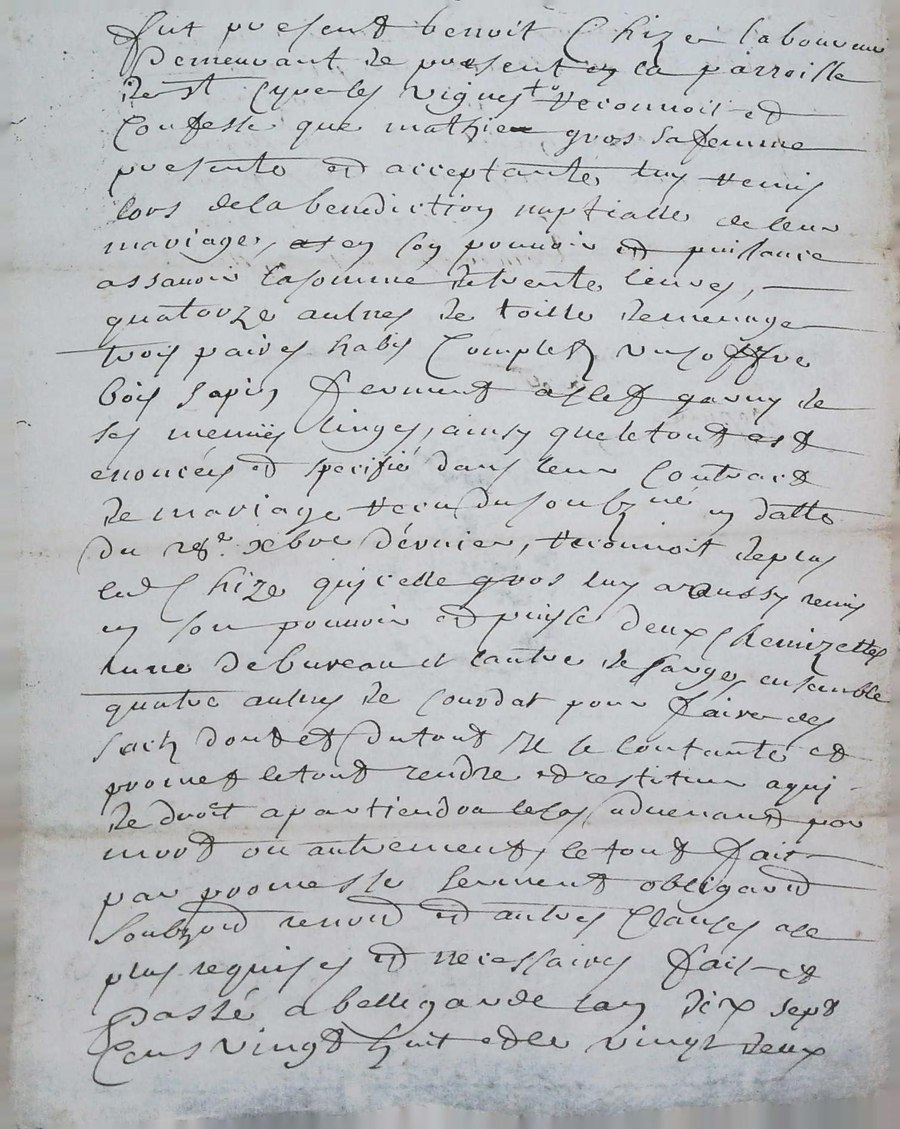 fut present benoit Chize laboureur
Demeurant de present en la parroisse
de st Cyr les vignes reconnoit et
Confesse que mathie gros sa femme
presente et acceptante luy remis
lors de la benediction nuptialle de leur
mariage, en son pouvoir et puissance
assavoir la somme de trente livres,
quatorze autres de toille de menage
trois paires habis Complet un coffre
bois sapin fermant a clef garny de
ses menus linges, ainsy que le tout est
enoncée et specifié dans leur Contract
de mariage receu du soubz né en datte
du xbre dernier, reconnoit de plus
led Chize qu'icelle gros luy a aussy remis
en son pouvoir et puisce deux Chemizettes
lune de bureau et lautre de sarge ensemble
quatre autres de Courdat pour faire des
sacz dont et du tout il se contante et
promet le tout rendre et restituer a qui
de droit apartiendra le cas advenant par
mort ou autrement, le tout fait
par promesse serment obligaõn
soubzon renon et autres Clauses a ce
plus requises et necessaires fait et
passé a bellegarde lan dix sept
Cens vingt huit et le vingt deux